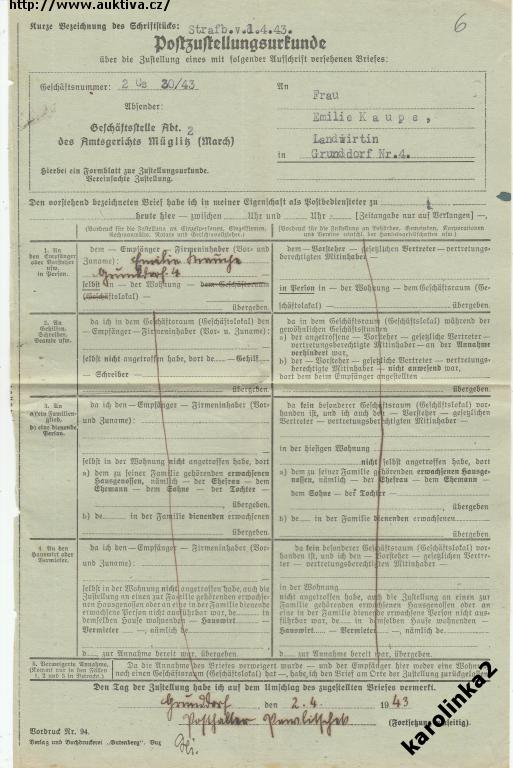 http://www.auktiva.cz/
Kurze Bezeichnung des Schriftstücks: Strafb.v.1.4.43.
6
Postzustellungsurkunde
über die Zustellung eines mit folgender Aufschrift versehenen Briefes:
Geschäftsnummer: 2 Cs 30/43
Absender:
Geschäftsstelle Abt. 2
des Amtsgerichts Müglitz (March)
Hierbei ein Formblatt zur Zustellungsurkunde.
Vereinfachte Zustellung.
An
Frau
Emilie Kaupe,
Landwirtin
in Grunddorf Nr.4.
Den vorstehend bezeichneten Brief habe ich in meiner Eigenschaft als Postbediensteter zu
heute hier — zwischen Uhr und Uhr [Zeitangabe nur auf Verlangen] —,
1. An den Empfänger oder Vorsteher usw. in Person.
dem — Empfänger — Firmeninhaber (Vor- und
Zuname): Emilie
Grunddorf 4
selbst in — der Wohnung — dem Geschäftsraum
(Geschäftslokal) —
übergeben.
dem — Vorsteher — gesetzlichen Vertreter — vertretungs-
berechtigten Mitinhaber —
in Person in — der Wohnung — dem Geschäftsraum (Ge-
schäftslokal) —
übergeben.
2. An Gehilfen, Schreiber, Beamte usw.
da ich in dem Geschäftsraum (Geschäftslokal) den
— Empfänger — Firmeninhaber (Vor- u. Zuname):
selbst nicht angetroffen habe, dort de — Gehilf
— Schreiber —
übergeben.
da ich in dem Geschäftsraum (Geschäftslokal) während der
gewöhnlichen Geschäftsstunden
a) der angetroffene — Vorsteher — gesetzliche Vertreter —
vertretungsberechtigte Mitinhaber — an der Annahme
verhindert war,
b) der — Vorsteher — gesetzliche Vertreter — vertretungs-
berechtigte Mitinhaber — nicht anwesend war,
dort dem beim Empfänger angestellten
übergeben.
3. An a) ein Familienglied, b) eine dienende Person.
da ich den — Empfänger — Firmeninhaber (Vor-
und Zuname):
selbst in der Wohnung nicht angetroffen habe, dort
a) dem zu seiner Familie gehörenden erwachsenen
Hausgenossen, nämlich — der Ehefrau — dem
Ehemann — dem Sohne — der Tochter —
übergeben.
b) de in der Familie dienenden erwachsenen
übergeben.
da kein besonderer Geschäftsraum (Geschäftslokal) vor-
handen ist, und ich auch den — Vorsteher — gesetzlichen
Vertreter — vertretungsberechtigten Mitinhaber —
in der hiesigen Wohnung
nicht selbst angetroffen habe, dort
a) dem zu seiner Familie gehörenden erwachsenen Hausge-
nossen, nämlich — der Ehefrau — dem Ehemann —
dem Sohne — der Tochter —
übergeben.
b) de in der Familie dienenden erwachsenen
übergeben.
4. An den Hauswirt oder Vermieter.
da ich den — Empfänger — Firmeninhaber (Vor-
und Zuname):
selbst in der Wohnung nicht angetroffen habe, auch die
Zustellung an einen zur Familie gehörenden erwach-
senen Hausgenossen oder an eine in der Familie dienende
erwachsene Person nicht ausführbar war, de in
demselben Hause wohnenden — Hauswirt —
Vermieter —, nämlich
de
— zur Annahme bereit war, übergeben.
da kein besonderer Geschäftsraum (Geschäftslokal) vor-
handen ist, und ich den — Vorsteher — gesetzlichen Vertre-
ter — vertretungsberechtigten Mitinhaber —
in der Wohnung
nicht angetroffen habe, auch die Zustellung an einen zur
Familie gehörenden erwachsenen Hausgenossen oder an
eine in der Familie dienende erwachsene Person nicht aus-
führbar war, de in demselben Hause wohnenden —
Hauswirt — Vermieter —, nämlich de
zur Annahme bereit war, übergeben.
5. Verweigerte Annahme. (Kommt nur in den Fällen 1, 2 und 5 in Betracht.)
Da die Annahme des Briefes verweigert wurde — und der Empfänger hier weder eine Wohn
noch einen Geschäftsraum (Geschäftslokal) hat —, habe ich den Brief am Orte der Zustellung zurückgelas
Den Tag der Zustellung habe ich auf dem Umschlag des zugestellten Briefes vermerkt.
Grunddorf, den 2. 4. 1943
Posthalter Pawlitschek (Fortsetzung
Vordruck Nr. 94.
Verlag und Buchdruckerei „Gutenberg“
karolinka2